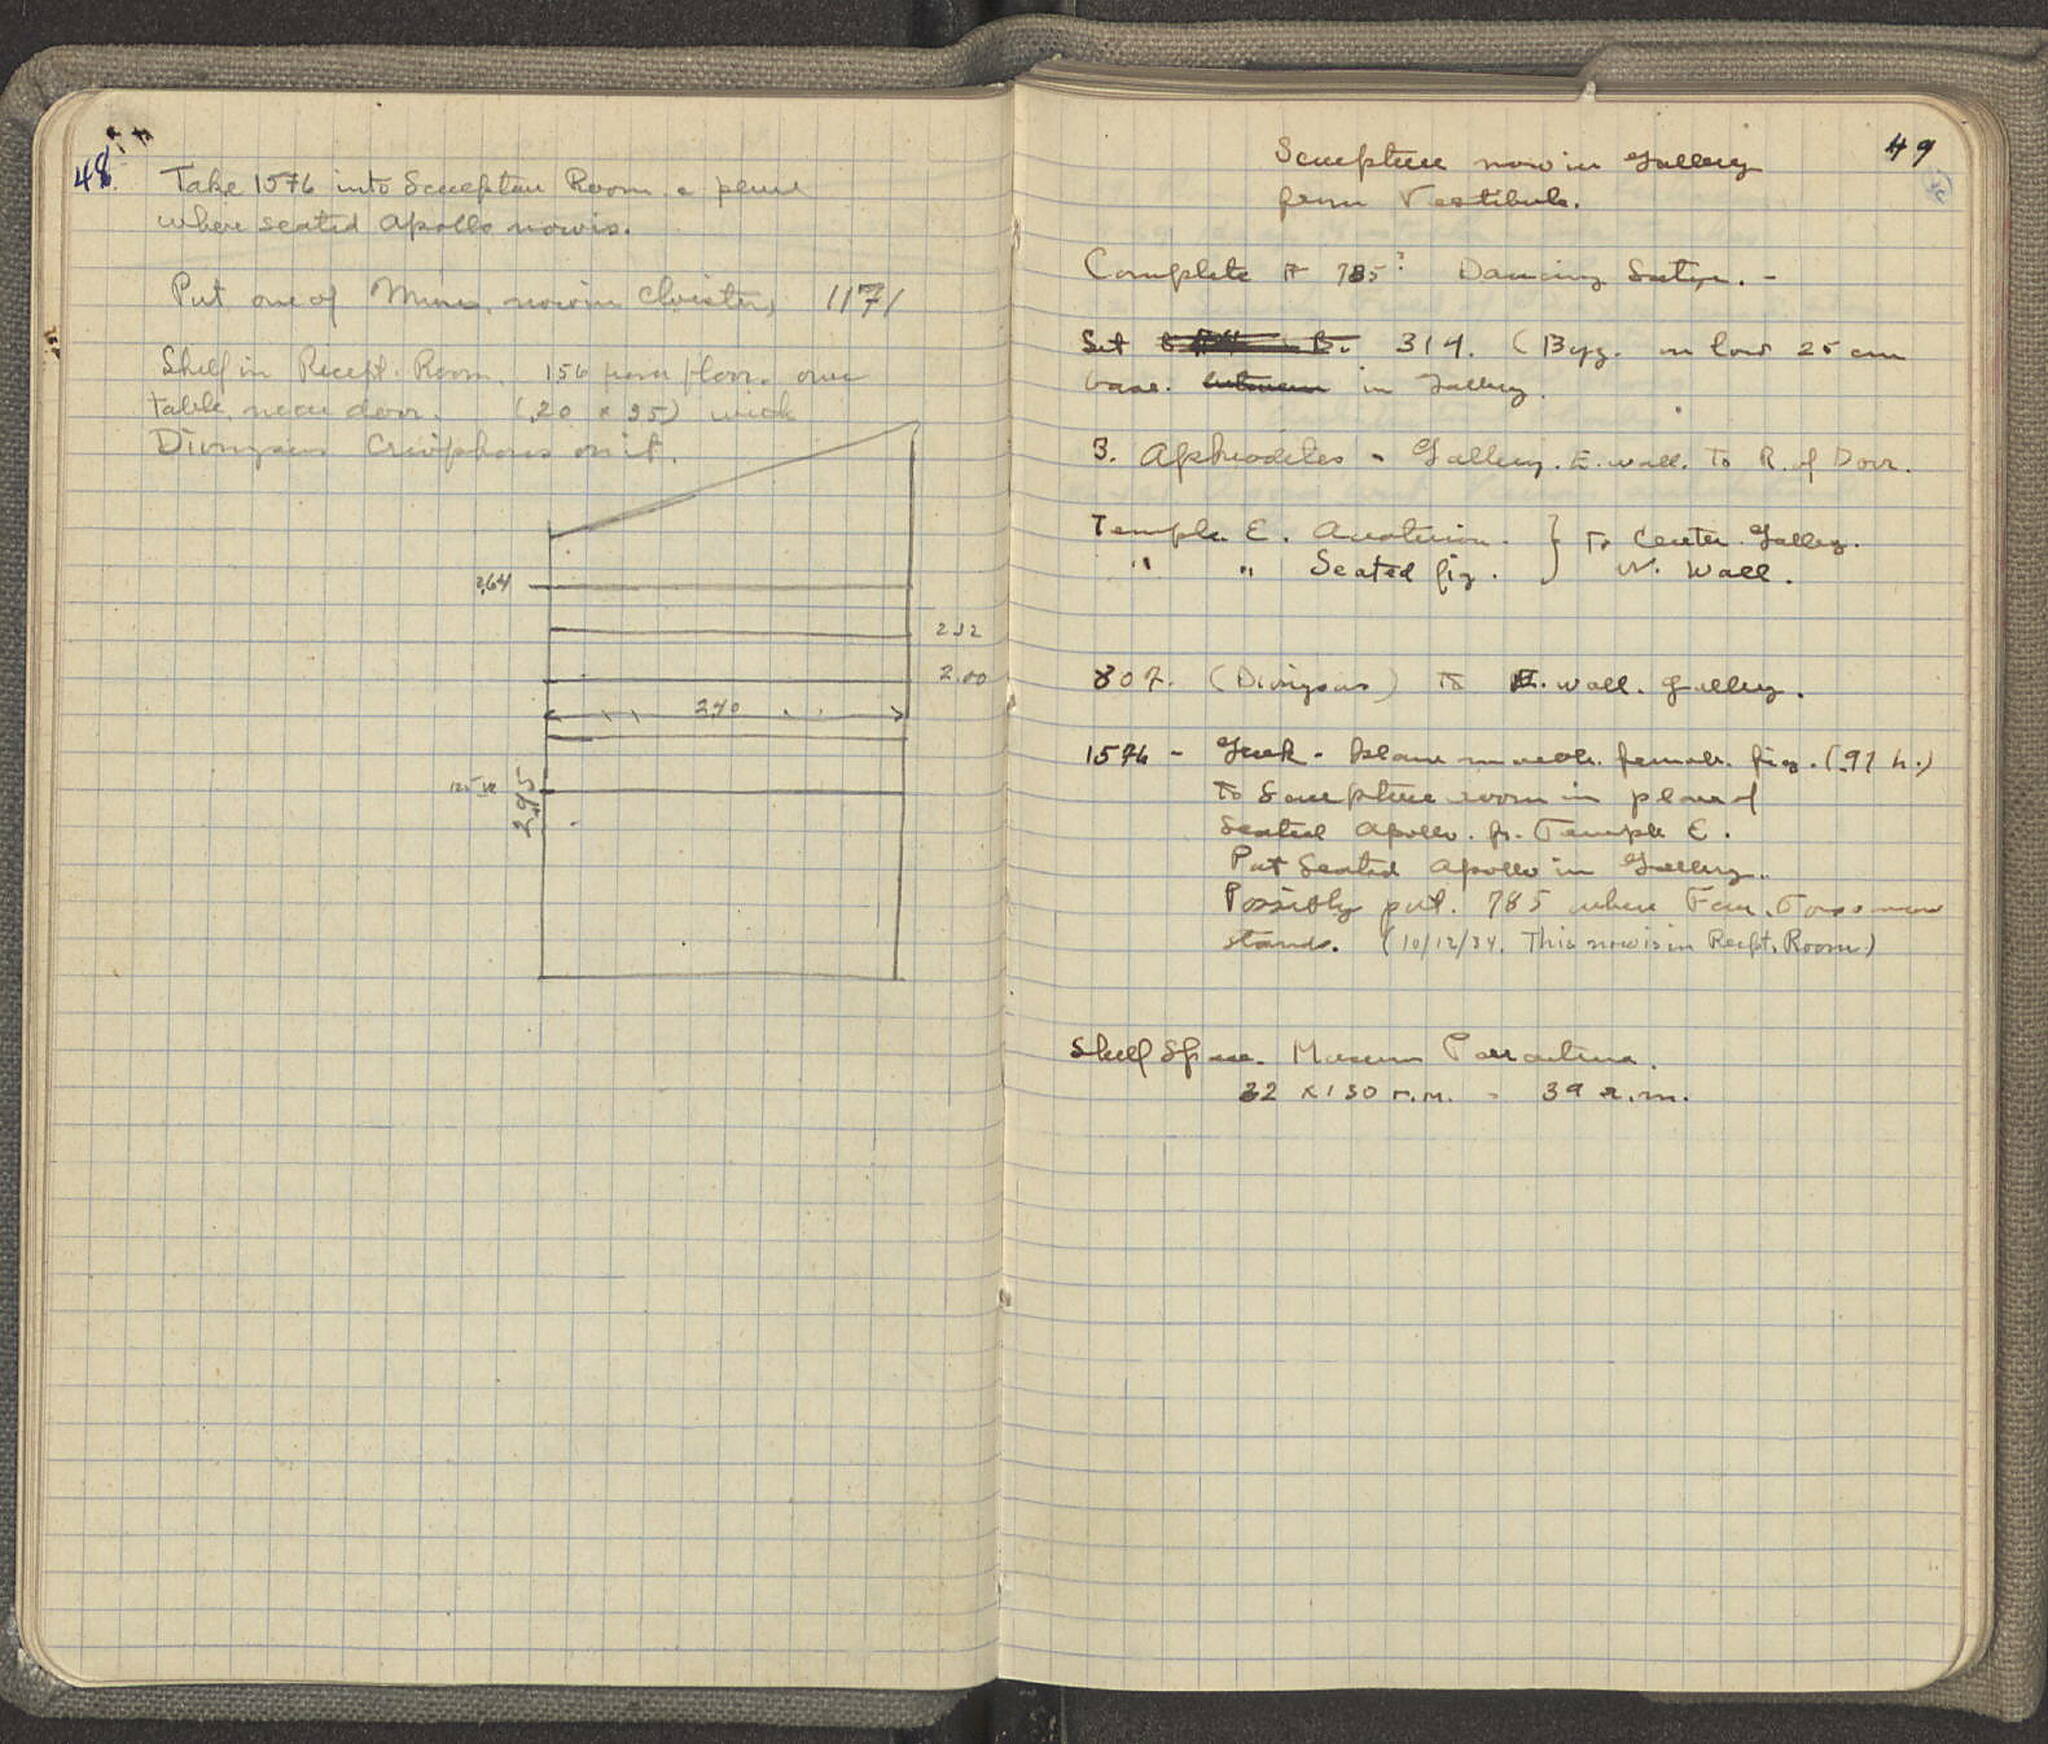 48.
Take 1576 into Sculpture Room & place
where seated Apollo now is.
Put one of Muses, now in Cloister, 1171
Shelf in Recept. Room. 156 from floor. over
table near door. (.20 x 35)
Dionysus Criophorus on it.
2.64
2.32
2.00
2.40
2.95
49
Sculpture now in Gallery
from Vestibule.
Complete # 785? Dancing Satyr. -
Set 314. (Byz. on low 25 cm
base. between in Gallery.
3. Aphrodites - Gallery. E. wall. To R. of Door.
Temple E. Acroterion. } To Center Gallery.
" " Seated fig. } N. Wall.
807. (Dionysus) To E. wall. Gallery.
1576 - Greek - Island marble. female. fig. (.97 h.)
To Sculpture room in place of
Seated Apollo. fr. Temple E.
Put Seated Apollo in Gallery.
Possibly put. 785 where Fem. Torso now
stands. (10/12/34. This now is in Recpt. Room)
Shelf Space. Museum
32 x 130 r.m. = 39 r.m.